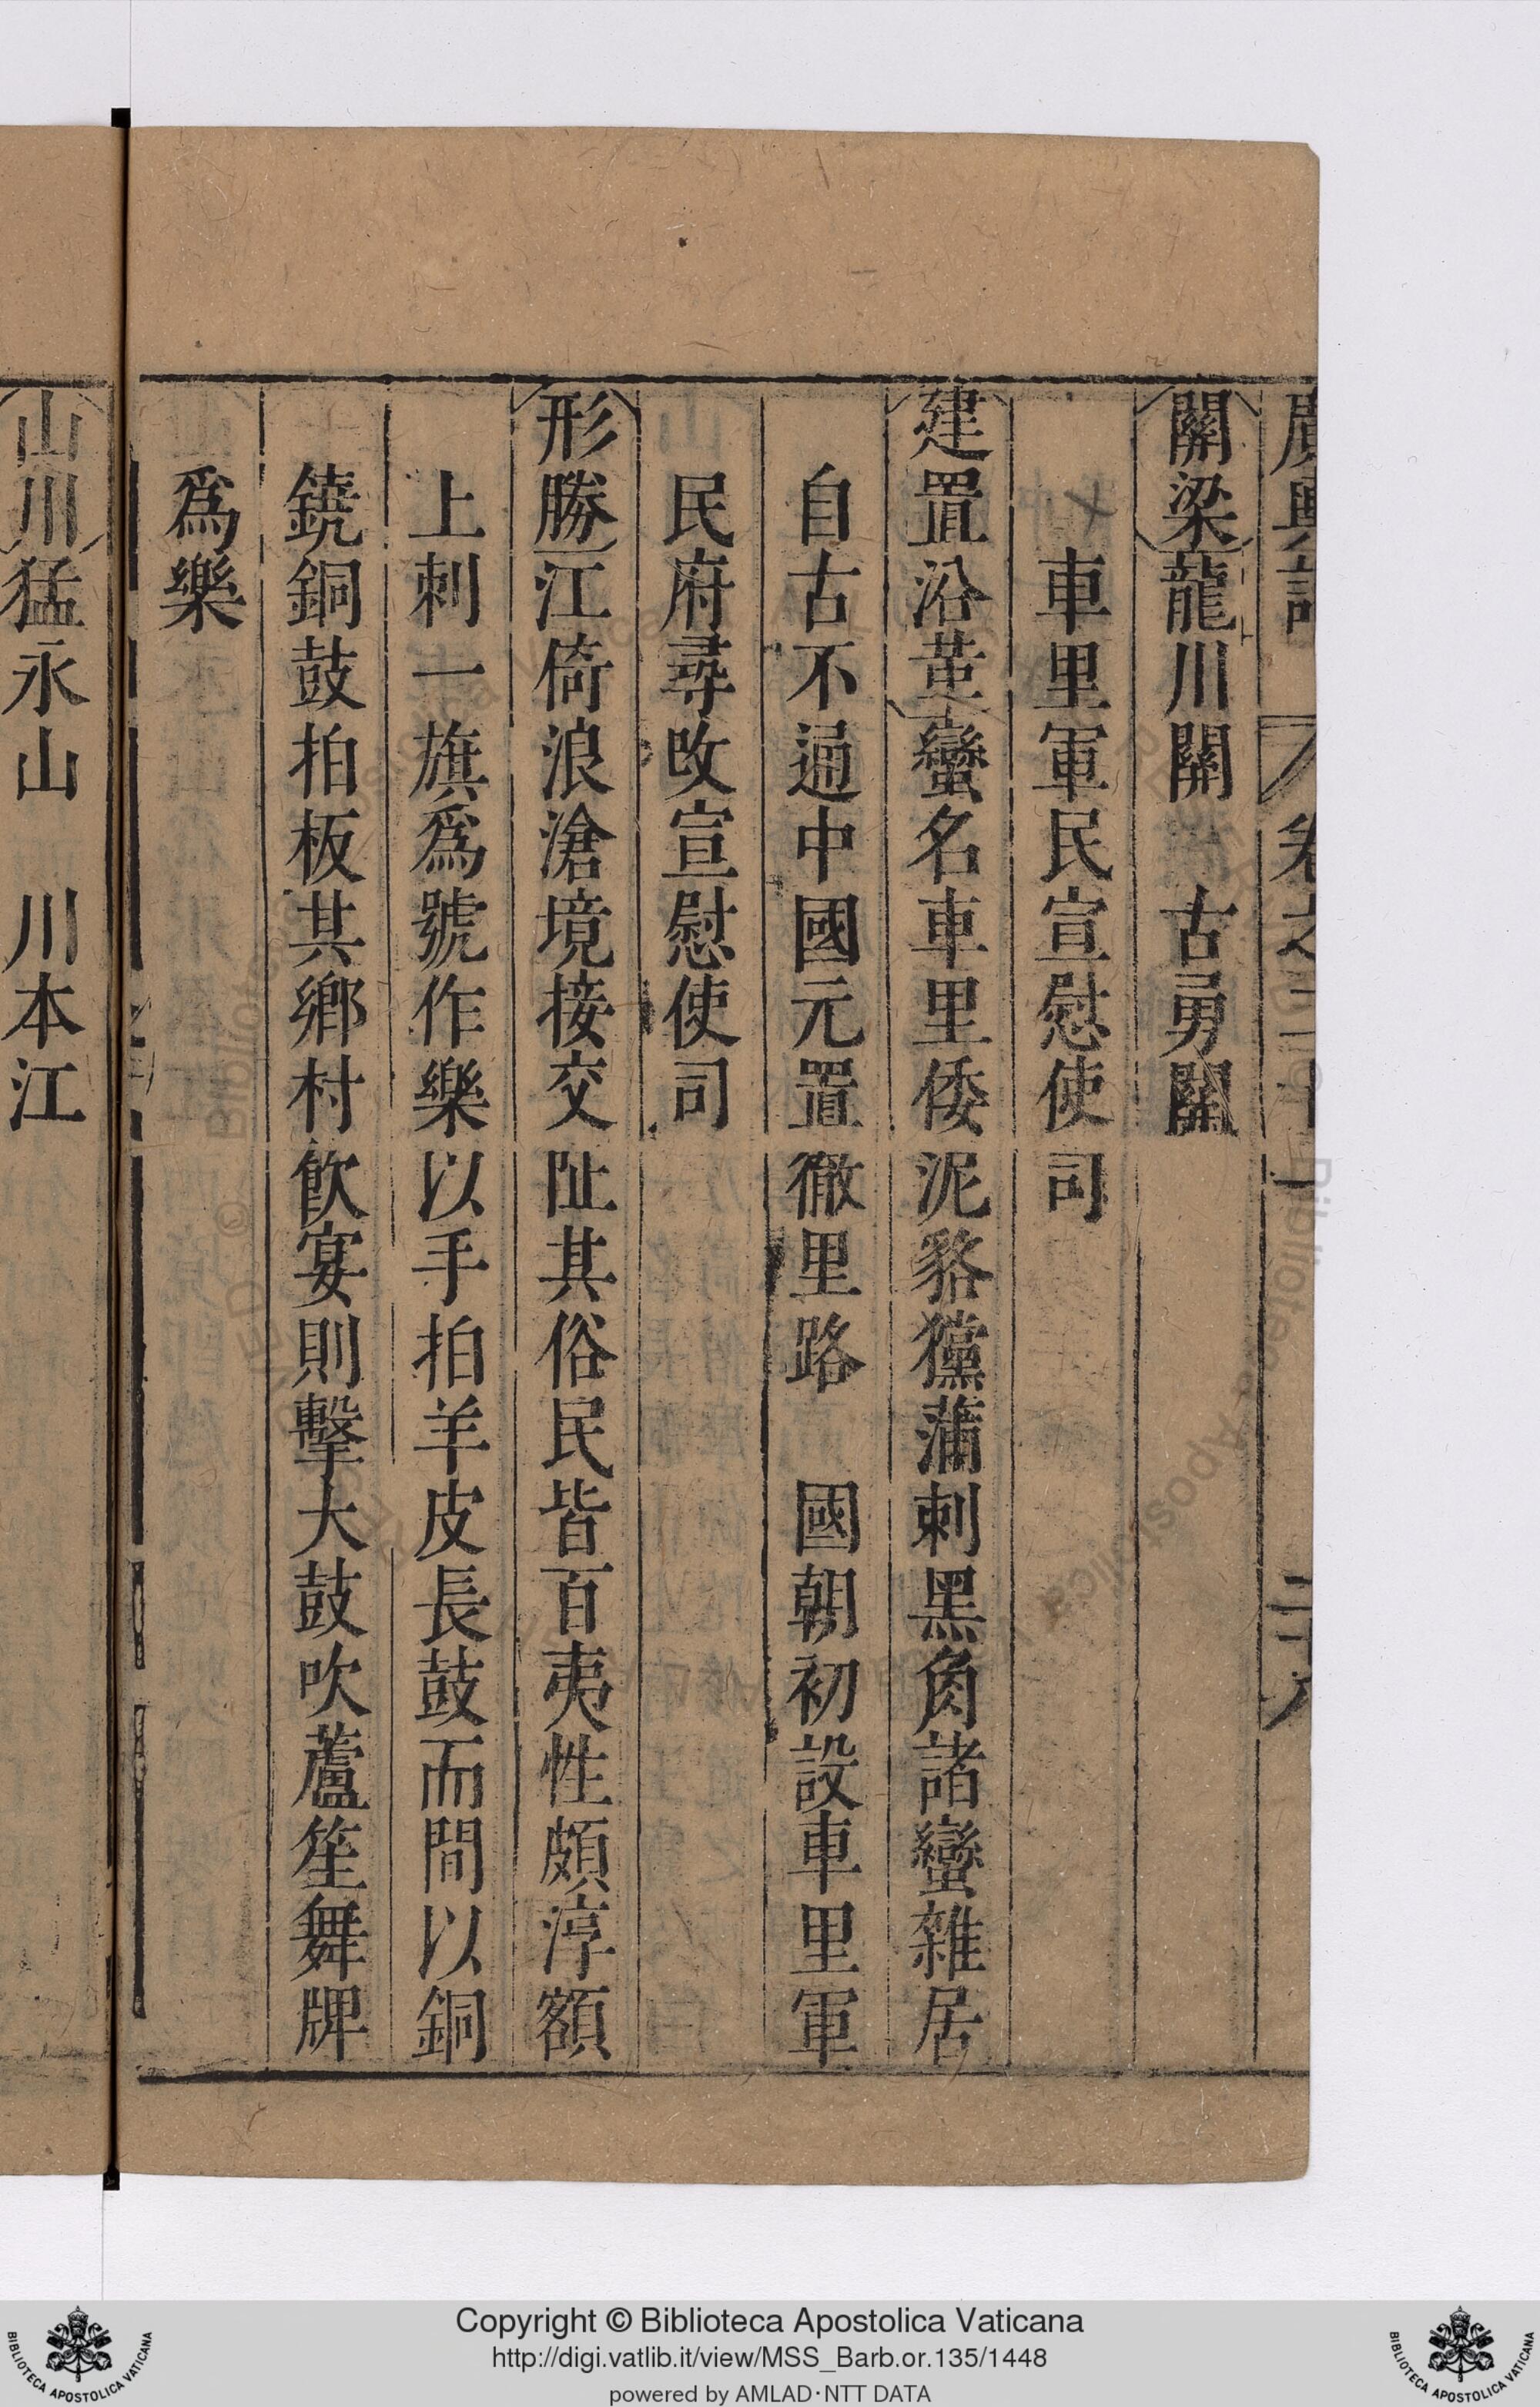 廣輿記 卷之二十一 二十八
關梁龍川關 古勇關
車里軍民宣慰使司
建置沿革蠻名車里倭泥貉㺓蒲剌黑角諸蠻雜居
自古不通中國元置徹里路 國朝初設車里軍
民府尋改宣慰使司
形勝江倚浪滄境接交阯其俗民皆百夷性頗淳額
上刺一旗為號作樂以手拍羊皮長鼓而間以銅
鐃銅鼓拍板其鄉村飲宴則擊大鼓吹蘆笙舞牌
為樂
山川猛永山 川本江
Copyright © Biblioteca Apostolica Vaticana
http://digi.vatlib.it/view/MSS_Barb.or.135/1448
powered by AMLAD·NTT DATA
BIBLIOTECA APOSTOLICA VATICANA
BIBLIOTECA APOSTOLICA VATICANA